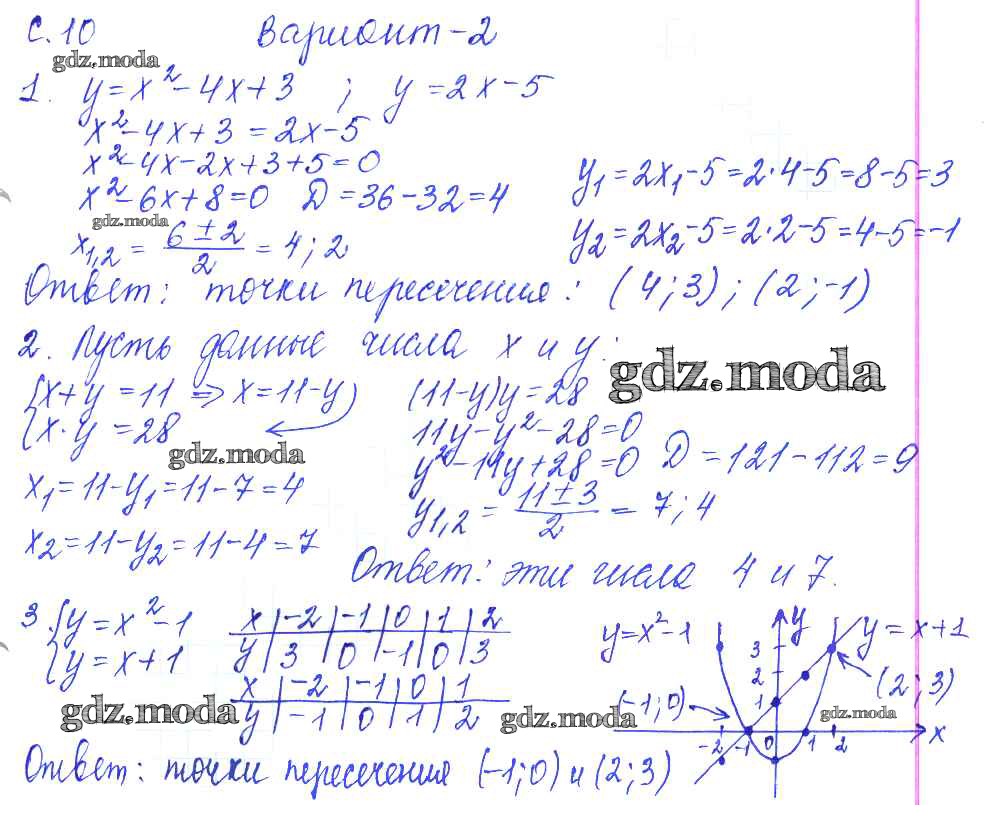 С.10 Вариант-2
gdz.moda
1. y = x² - 4x + 3 ; y = 2x - 5
x² - 4x + 3 = 2x - 5
x² - 4x - 2x + 3 + 5 = 0
x² - 6x + 8 = 0 D = 36 - 32 = 4
y₁ = 2x₁ - 5 = 2·4 - 5 = 8 - 5 = 3
gdz.moda
x₁,₂ = (6 ± 2)/2 = 4 ; 2
y₂ = 2x₂ - 5 = 2·2 - 5 = 4 - 5 = -1
Ответ: точки пересечения: (4;3) ; (2;-1)
2. Пусть данные числа x и y:
gdz.moda
{x + y = 11 => x = 11 - y
{x · y = 28
gdz.moda
(11 - y)y = 28
11y - y² - 28 = 0
y² - 11y + 28 = 0 D = 121 - 112 = 9
y₁,₂ = (11 ± 3)/2 = 7 ; 4
x₁ = 11 - y₁ = 11 - 7 = 4
x₂ = 11 - y₂ = 11 - 4 = 7
Ответ: эти числа 4 и 7.
3. {y = x² - 1
{y = x + 1
x | -2 | -1 | 0 | 1 | 2
y | 3 | 0 | -1 | 0 | 3
x | -2 | -1 | 0 | 1
y | -1 | 0 | 1 | 2
gdz.moda
gdz.moda
y = x² - 1
y
y = x + 1
3
2
1
(-1;0)
(2;3)
gdz.moda
-2 -1 0 1 2 x
Ответ: точки пересечения (-1;0) и (2;3)